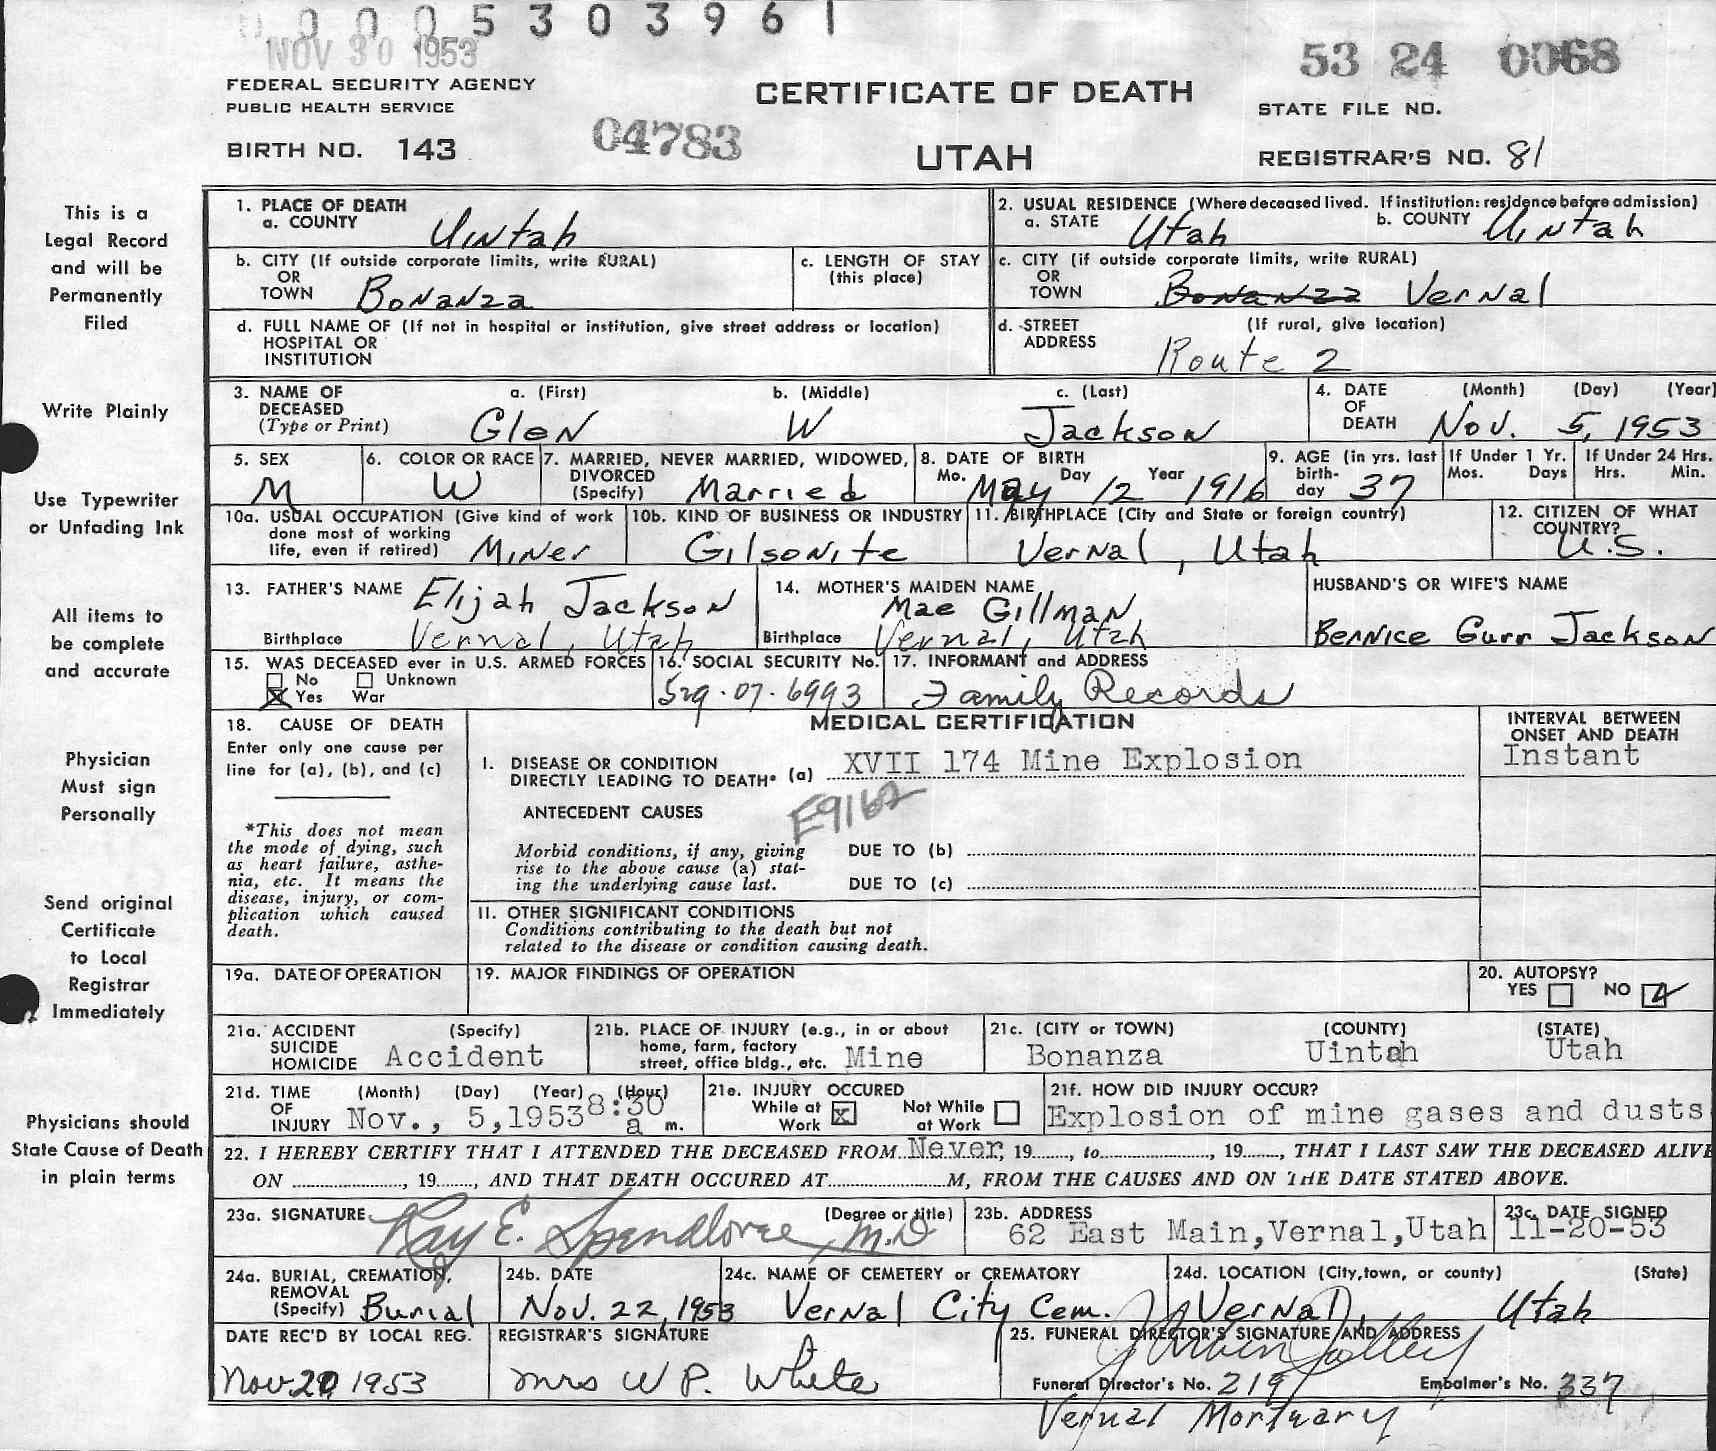 0 0 0 5 3 0 3 9 6 1
NOV 30 1953
53 24 0068
FEDERAL SECURITY AGENCY
PUBLIC HEALTH SERVICE
CERTIFICATE OF DEATH
STATE FILE NO.
BIRTH NO. 143
04783
UTAH
REGISTRAR'S NO. 81
This is a
Legal Record
and will be
Permanently
Filed
Write Plainly
Use Typewriter
or Unfading Ink
All items to
be complete
and accurate
Physician
Must sign
Personally
Send original
Certificate
to Local
Registrar
Immediately
Physicians should
State Cause of Death
in plain terms
1. PLACE OF DEATH
a. COUNTY Uintah
2. USUAL RESIDENCE (Where deceased lived. If institution: residence before admission)
a. STATE Utah b. COUNTY Uintah
b. CITY (If outside corporate limits, write RURAL)
OR
TOWN Bonanza
c. LENGTH OF STAY
(this place)
c. CITY (if outside corporate limits, write RURAL)
OR
TOWN Bonanza Vernal
d. FULL NAME OF (If not in hospital or institution, give street address or location)
HOSPITAL OR
INSTITUTION
d. STREET (If rural, give location)
ADDRESS Route 2
3. NAME OF DECEASED (Type or Print)
a. (First) b. (Middle) c. (Last)
Glen W Jackson
4. DATE OF DEATH (Month) (Day) (Year)
Nov. 5, 1953
5. SEX
M
6. COLOR OR RACE
W
7. MARRIED, NEVER MARRIED, WIDOWED,
DIVORCED
(Specify) Married
8. DATE OF BIRTH
Mo. Day Year
May 12 1916
9. AGE (in yrs. last
birth-
day 37
If Under 1 Yr.
Mos. Days
If Under 24 Hrs.
Hrs. Min.
10a. USUAL OCCUPATION (Give kind of work
done most of working
life, even if retired) Miner
10b. KIND OF BUSINESS OR INDUSTRY
Gilsonite
11. BIRTHPLACE (City and State or foreign country)
Vernal, Utah
12. CITIZEN OF WHAT
COUNTRY?
U.S.
13. FATHER'S NAME Elijah Jackson
Birthplace Vernal, Utah
14. MOTHER'S MAIDEN NAME
Mae Gillman
Birthplace Vernal, Utah
HUSBAND'S OR WIFE'S NAME
Bernice Gurr Jackson
15. WAS DECEASED ever in U.S. ARMED FORCES
No Unknown
X Yes War
16. SOCIAL SECURITY No.
529-07-6993
17. INFORMANT and ADDRESS
Family Records
18. CAUSE OF DEATH
Enter only one cause per
line for (a), (b), and (c)
*This does not mean
the mode of dying, such
as heart failure, asthe-
nia, etc. It means the
disease, injury, or com-
plication which caused
death.
MEDICAL CERTIFICATION
I. DISEASE OR CONDITION
DIRECTLY LEADING TO DEATH* (a) XVII 174 Mine Explosion
E9162
ANTECEDENT CAUSES
Morbid conditions, if any, giving
rise to the above cause (a) stat-
ing the underlying cause last.
DUE TO (b)
DUE TO (c)
II. OTHER SIGNIFICANT CONDITIONS
Conditions contributing to the death but not
related to the disease or condition causing death.
INTERVAL BETWEEN
ONSET AND DEATH
Instant
19a. DATE OF OPERATION
19. MAJOR FINDINGS OF OPERATION
20. AUTOPSY?
YES NO
21a. ACCIDENT (Specify)
SUICIDE
HOMICIDE Accident
21b. PLACE OF INJURY (e.g., in or about
home, farm, factory
street, office bldg., etc. Mine
21c. (CITY or TOWN) (COUNTY) (STATE)
Bonanza Uintah Utah
21d. TIME (Month) (Day) (Year) (Hour)
OF
INJURY Nov., 5,1953 8:30 a m.
21e. INJURY OCCURED
While at
Work x
Not While
at Work
21f. HOW DID INJURY OCCUR?
Explosion of mine gases and dusts
22. I HEREBY CERTIFY THAT I ATTENDED THE DECEASED FROM Never, 19......, to......, 19......, THAT I LAST SAW THE DECEASED ALIVE
ON ......, 19......, AND THAT DEATH OCCURED AT......M, FROM THE CAUSES AND ON THE DATE STATED ABOVE.
23a. SIGNATURE (Degree or title)
Ray E. Spendlove, M.D
23b. ADDRESS
62 East Main,Vernal,Utah
23c. DATE SIGNED
11-20-53
24a. BURIAL, CREMATION,
REMOVAL
(Specify) Burial
24b. DATE
Nov. 22, 1953
24c. NAME OF CEMETERY or CREMATORY
Vernal City Cem.
24d. LOCATION (City, town, or county) (State)
Vernal, Utah
DATE REC'D BY LOCAL REG.
Nov 20, 1953
REGISTRAR'S SIGNATURE
Mrs W P. White
25. FUNERAL DIRECTOR'S SIGNATURE AND ADDRESS
Funeral Director's No. 219 Embalmer's No. 337
Vernal Mortuary